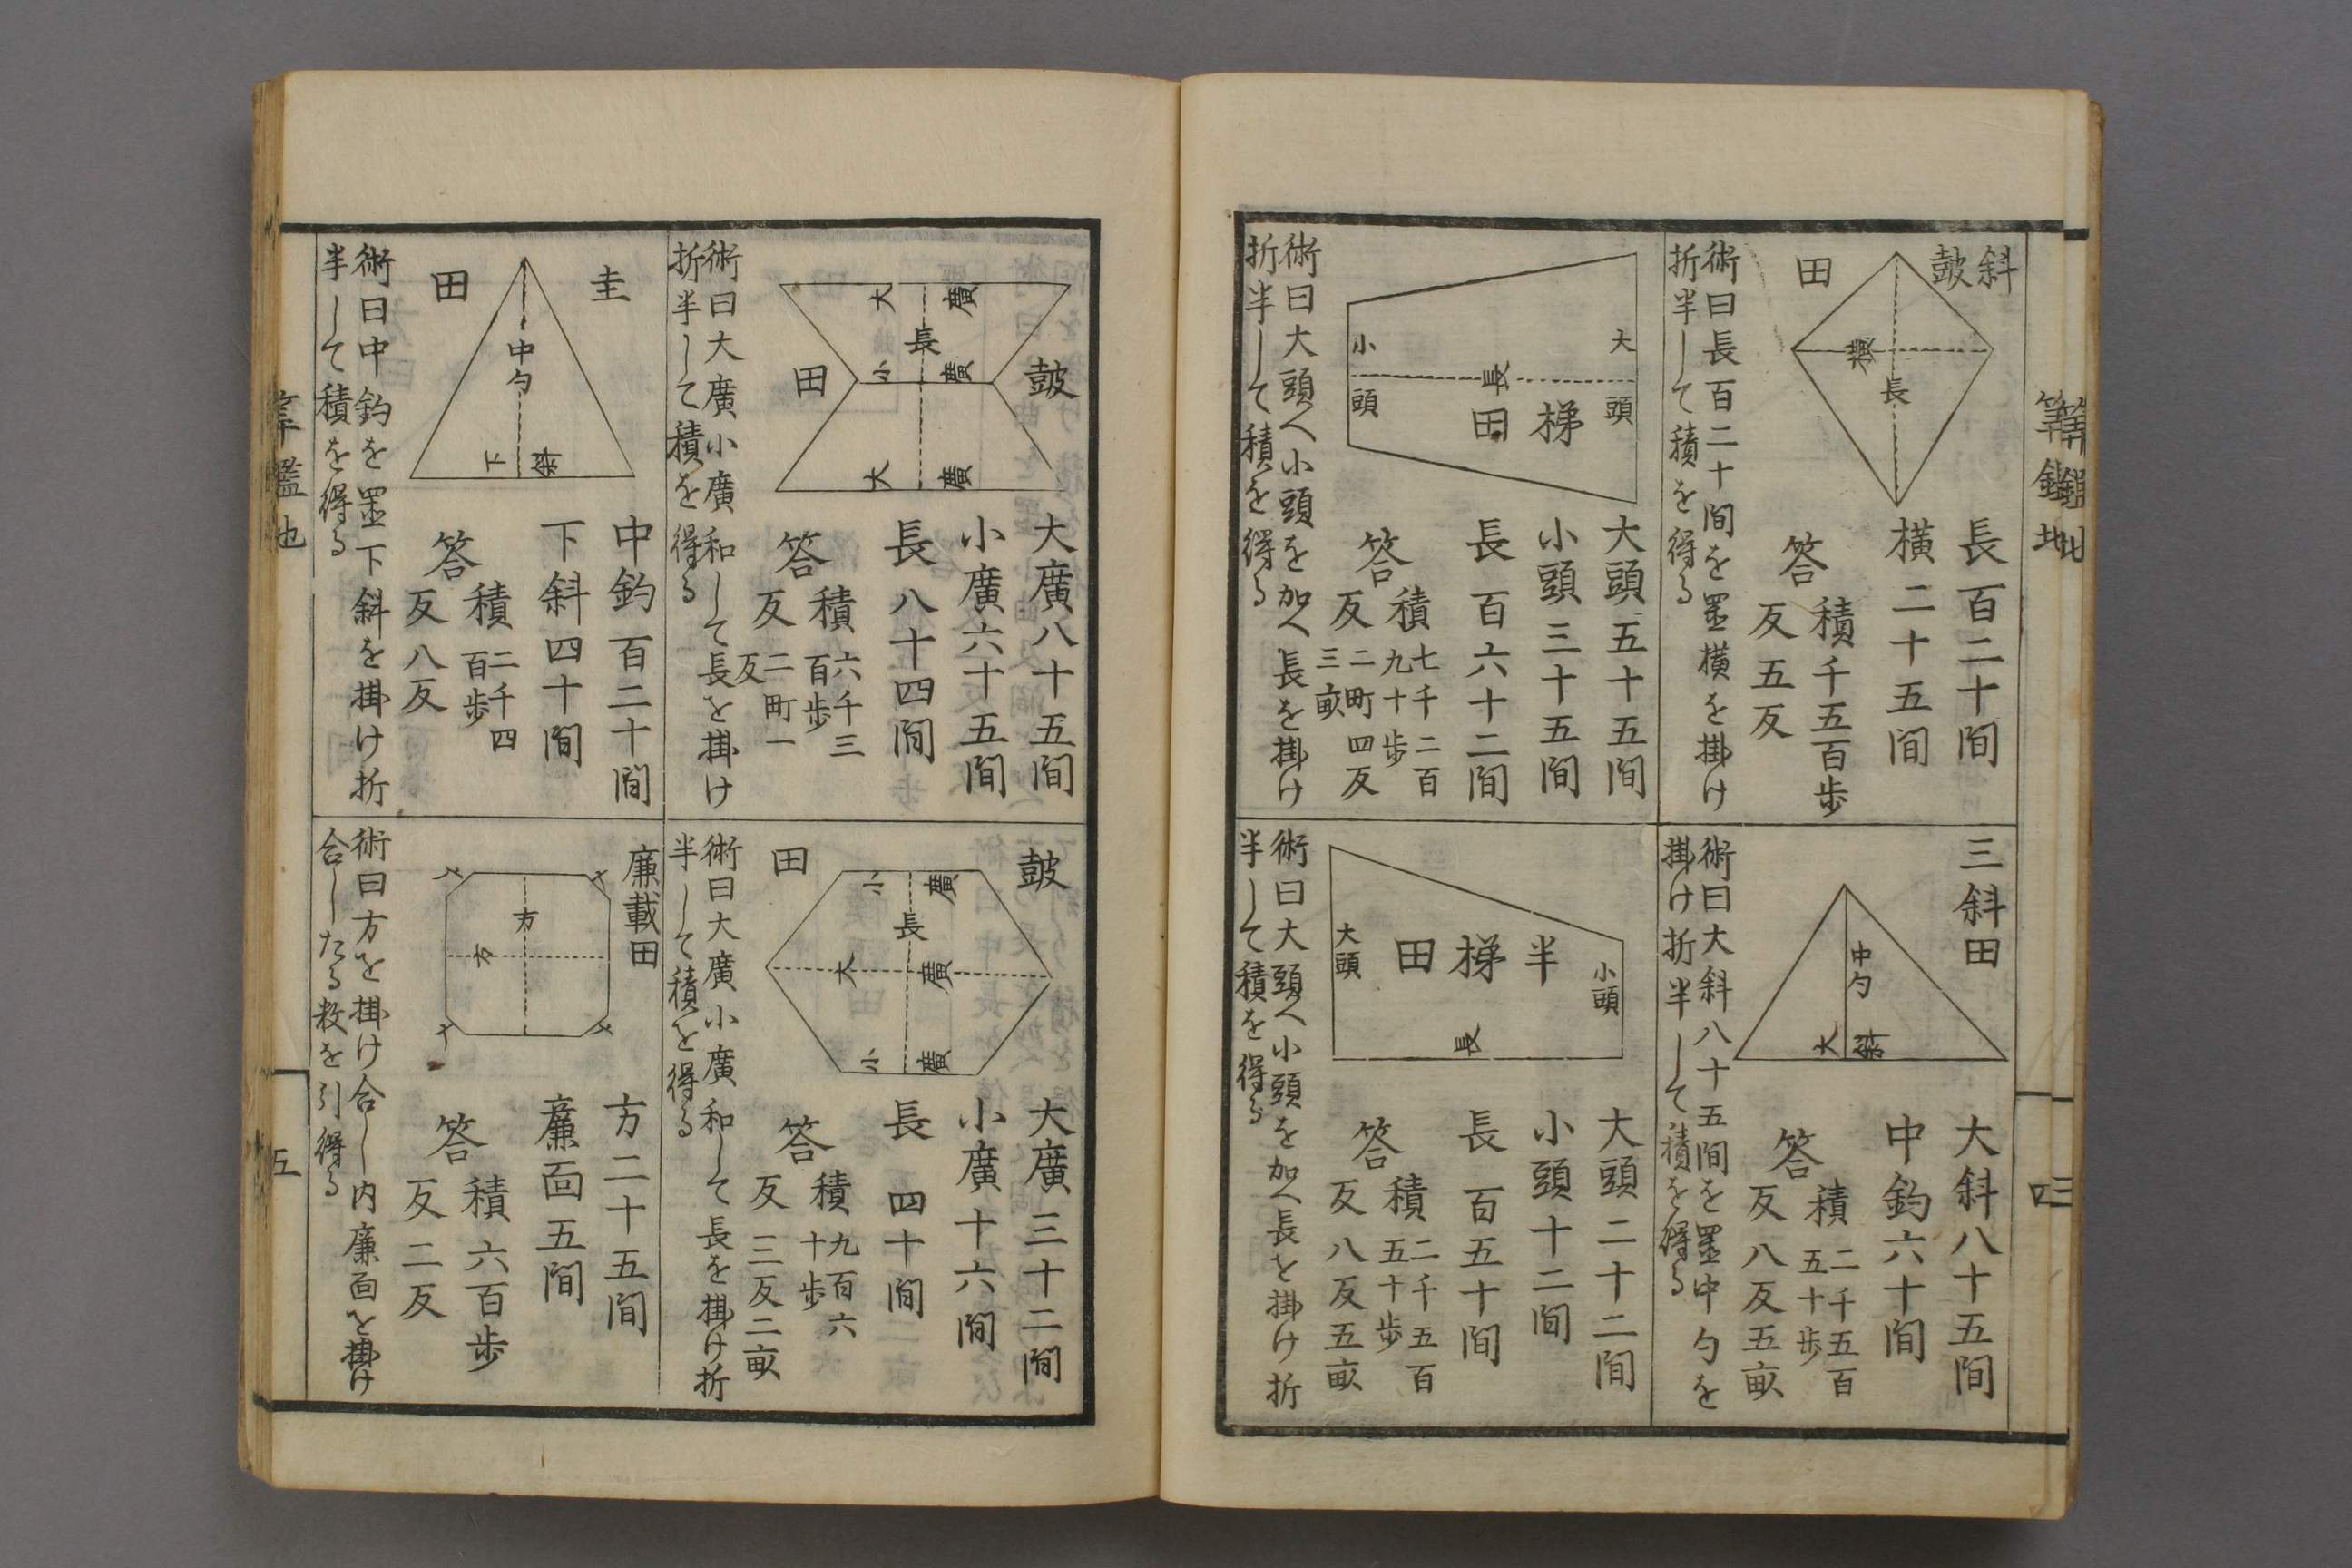 斜
皷
田
横
長
長百二十間
横二十五間
答
積千五百歩
反五反
術曰長百二十間を置横を掛け
折半して積を得る
三斜田
中勾
大斜
大斜八十五間
中鈎六十間
答
積二千五百
五十歩
反八反五畝
術曰大斜八十五間を置中勾を
掛け折半して積を得る
大頭
長
小頭
梯田
大頭五十五間
小頭三十五間
長百六十二間
答
積七千二百
九十歩
反二町四反
三畝
術曰大頭へ小頭を加へ長を掛け
折半して積を得る
小頭
半梯田
大頭
長
大頭二十二間
小頭十二間
長百五十間
答
積二千五百
五十歩
反八反五畝
術曰大頭へ小頭を加へ長を掛け折
半して積を得る
皷
田
大廣
長
小廣
大廣
大廣八十五間
小廣六十五間
長八十四間
答
積六千三
百歩
反二町一
反
術曰大廣小廣和して長を掛け
折半して積を得る
皷
田
小廣
長
大廣
小廣
大廣三十二間
小廣十六間
長四十間
答
積九百六
十歩
反三反二畝
術曰大廣小廣和して長を掛け折
半して積を得る
圭
田
中勾
下斜
中鈎百二十間
下斜四十間
答
積二千四
百歩
反八反
術曰中鈎を置下斜を掛け折
半して積を得る
廉載田
方
方
方二十五間
廉面五間
答
積六百歩
反二反
術曰方を掛け合し内廉面を掛け
合したる数を引得る
五